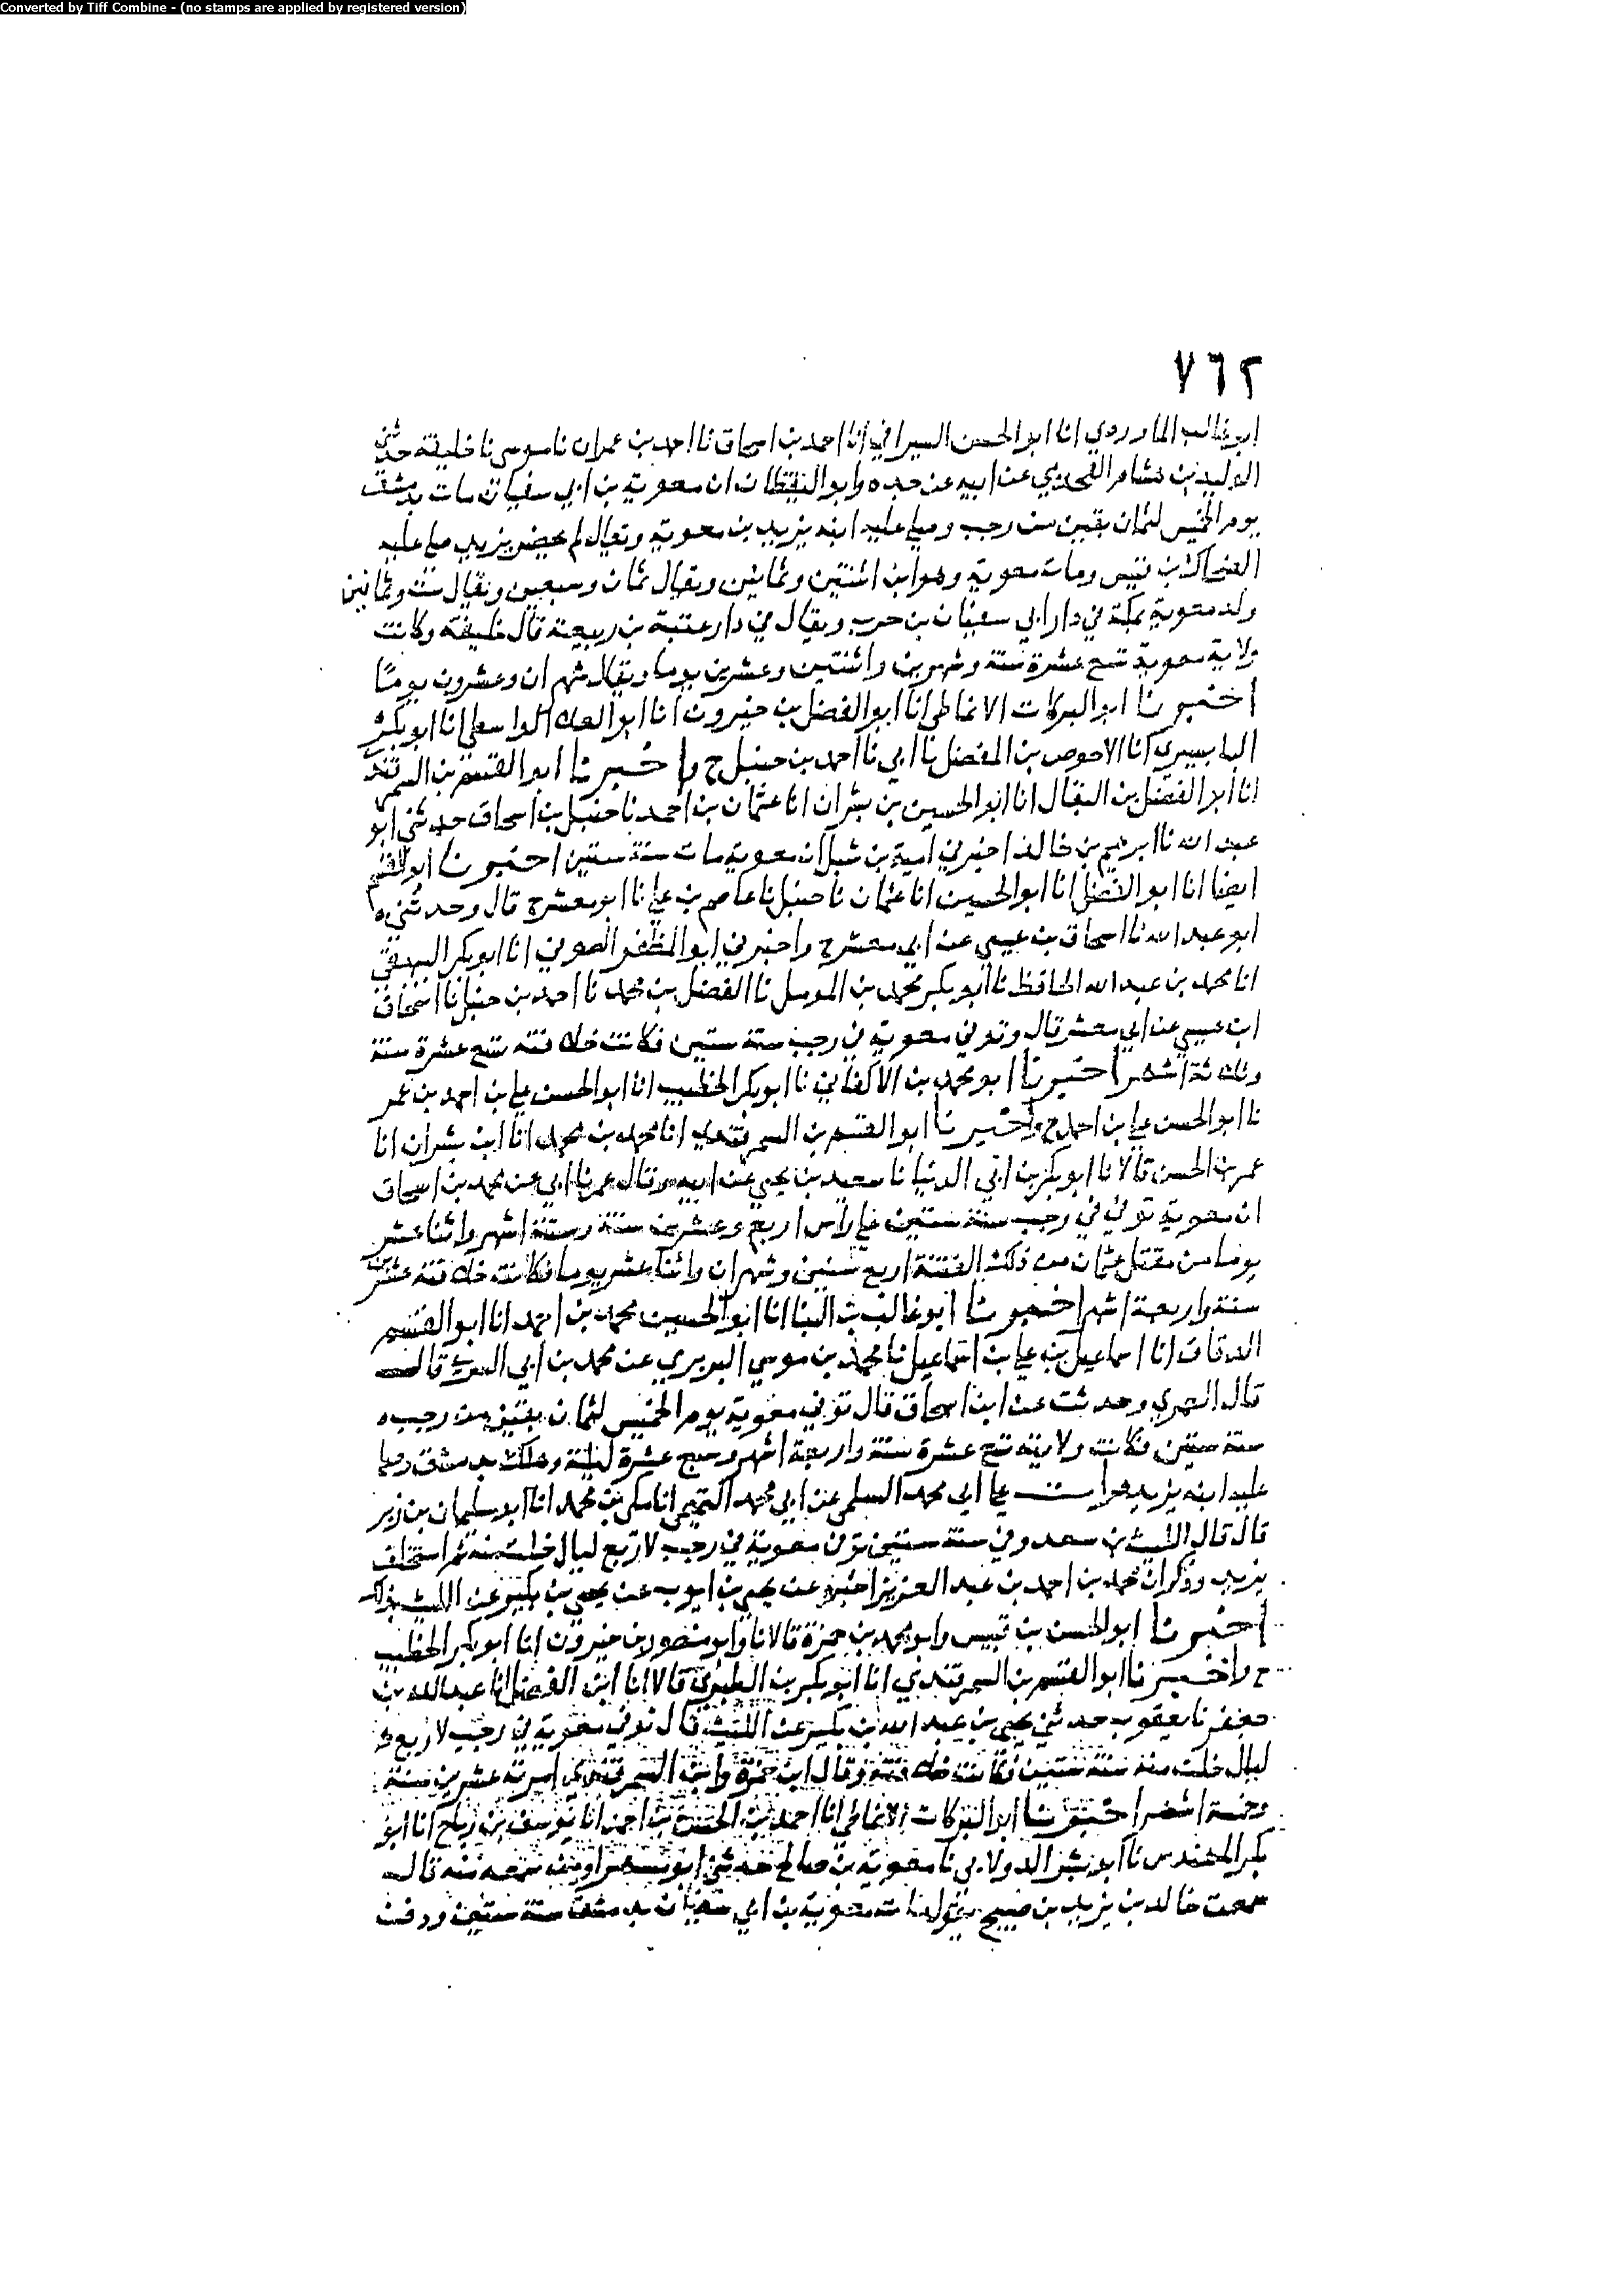 Converted by Tiff Combine - (no stamps are applied by registered version)
٧٦٢
ابو غالب الماوردي انا ابو الحسن السيرافي انا احمد بن اسحاق نا احمد بن عمران نا موسى نا خليفة حدثني
الوليد بن هشام القحذمي عن ابيه عن جده وابو اليقظان ان معوية بن ابي سفيان مات بدمشق
يوم الخميس لثمان بقين من رجب وصلى عليه ابنه يزيد بن معوية ويقال لم يحضر يزيد صلى عليه
الضحاك بن قيس ومات معوية وهو ابن اثنتين وثمانين ويقال ثمان وسبعين ويقال ست وثمانين
ولد معوية بمكة في دار ابي سفيان بن حرب ويقال في دار عتبة بن ربيعة قال خليفة وكانت
ولاية معوية تسع عشرة سنة وشهرين واثنتين وعشرين يوما ويقال شهران وعشرون يومًا
اخبرنا ابو البركات الانماطي انا ابو الفضل بن خيرون انا ابو العلا الواسطي انا ابو بكر
البابسيري انا الاحوص بن المفضل نا ابي نا احمد بن حنبل ح واخبرنا ابو القسم بن السمرقندي
انا ابو الفضل بن البقال انا ابو الحسين بن بشران انا عثمان بن احمد نا حنبل بن اسحاق حدثني ابو
عبد الله نا ابرهيم بن خالد اخبرني امية بن شبل ان معوية مات سنة ستين اخبرنا ابو القسم
ايضا انا ابو الفضل انا ابو الحسين انا عثمان نا حنبل نا عاصم بن علي نا ابو معشر ح قال وحدثني
ابو عبد الله نا اسحاق بن عيسى عن ابي معشر ح واخبرني ابو المظفر الصوفي انا ابو بكر البيهقي
انا محمد بن عبد الله الحافظ نا ابو بكر محمد بن المومل نا الفضل بن محمد نا احمد بن حنبل نا اسحاق
ابن عيسى عن ابي معشر قال وتوفي معوية في رجب سنة ستين فكانت خلافته تسع عشرة سنة
وثلاثة اشهر اخبرنا ابو محمد بن الاكفاني نا ابو بكر الخطيب انا ابو الحسن علي بن احمد بن عمر
نا ابو الحسن علي بن احمد ح واخبرنا ابو القسم بن السمرقندي انا محمد بن محمد انا ابن بشران انا
عمر بن الحسن قالا نا ابو بكر بن ابي الدنيا نا سعيد بن يحيى عن ابيه وقال عمر نا ابي عن محمد بن اسحاق
ان معوية توفي في رجب سنة ستين على راس اربع وعشرين سنة وستة اشهر واثنا عشر
يوما من مقتل عثمان من ذلك الفتنة اربع سنين وشهران واثنا عشر يوما فكانت خلافته عشرين
سنة واربعة اشهر اخبرنا ابو غالب بن البنا انا ابو الحسين محمد بن احمد انا ابو القسم
الدقاق انا اسماعيل بن علي بن اسماعيل نا محمد بن موسى البربري عن محمد بن ابي السري قال
قال العمري وحدثت عن ابن اسحاق قال توفي معوية يوم الخميس لثمان بقين من رجب
سنة ستين فكانت ولايته تسع عشرة سنة واربعة اشهر وسبع عشرة ليلة وملك بدمشق وصلى
عليه ابنه يزيد قرات على ابي محمد السلمي عن ابي محمد التميمي انا مكي بن محمد انا ابو سليمان بن زبر
قال قال الليث بن سعد وفي سنة ستين توفي معوية في رجب لاربع ليال خلت منه ثم استخلف
يزيد وذكر ان محمد بن احمد بن عبد العزيز اخبره عن يحيى بن ايوب عن يحيى بن بكير عن الليث بذلك
اخبرنا ابو الحسن بن قبيس وابو محمد بن حمزة قالا نا وابو منصور بن خيرون انا ابو بكر الخطيب
ح واخبرنا ابو القسم بن السمرقندي انا ابو بكر بن الطبري قالا انا ابن الفضل انا عبد الله بن
جعفر نا يعقوب حدثني يحيى بن عبد الله بن بكير عن الليث قال توفي معوية في رجب لاربع
ليال خلت منه سنة ستين فكانت خلافته وقال ابن حمزة وابن السمرقندي امرته عشرين سنة
وخمسة اشهر اخبرنا ابو البركات الانماطي انا احمد بن الحسن بن احمد انا يوسف بن رباح انا ابو
بكر المهندس نا ابو بشر الدولابي نا معوية بن صالح حدثني ابو مسهر او من سمعه منه قال
سمعت خالد بن يزيد بن صبيح يقول مات معوية بن ابي سفيان بدمشق سنة ستين ودفن